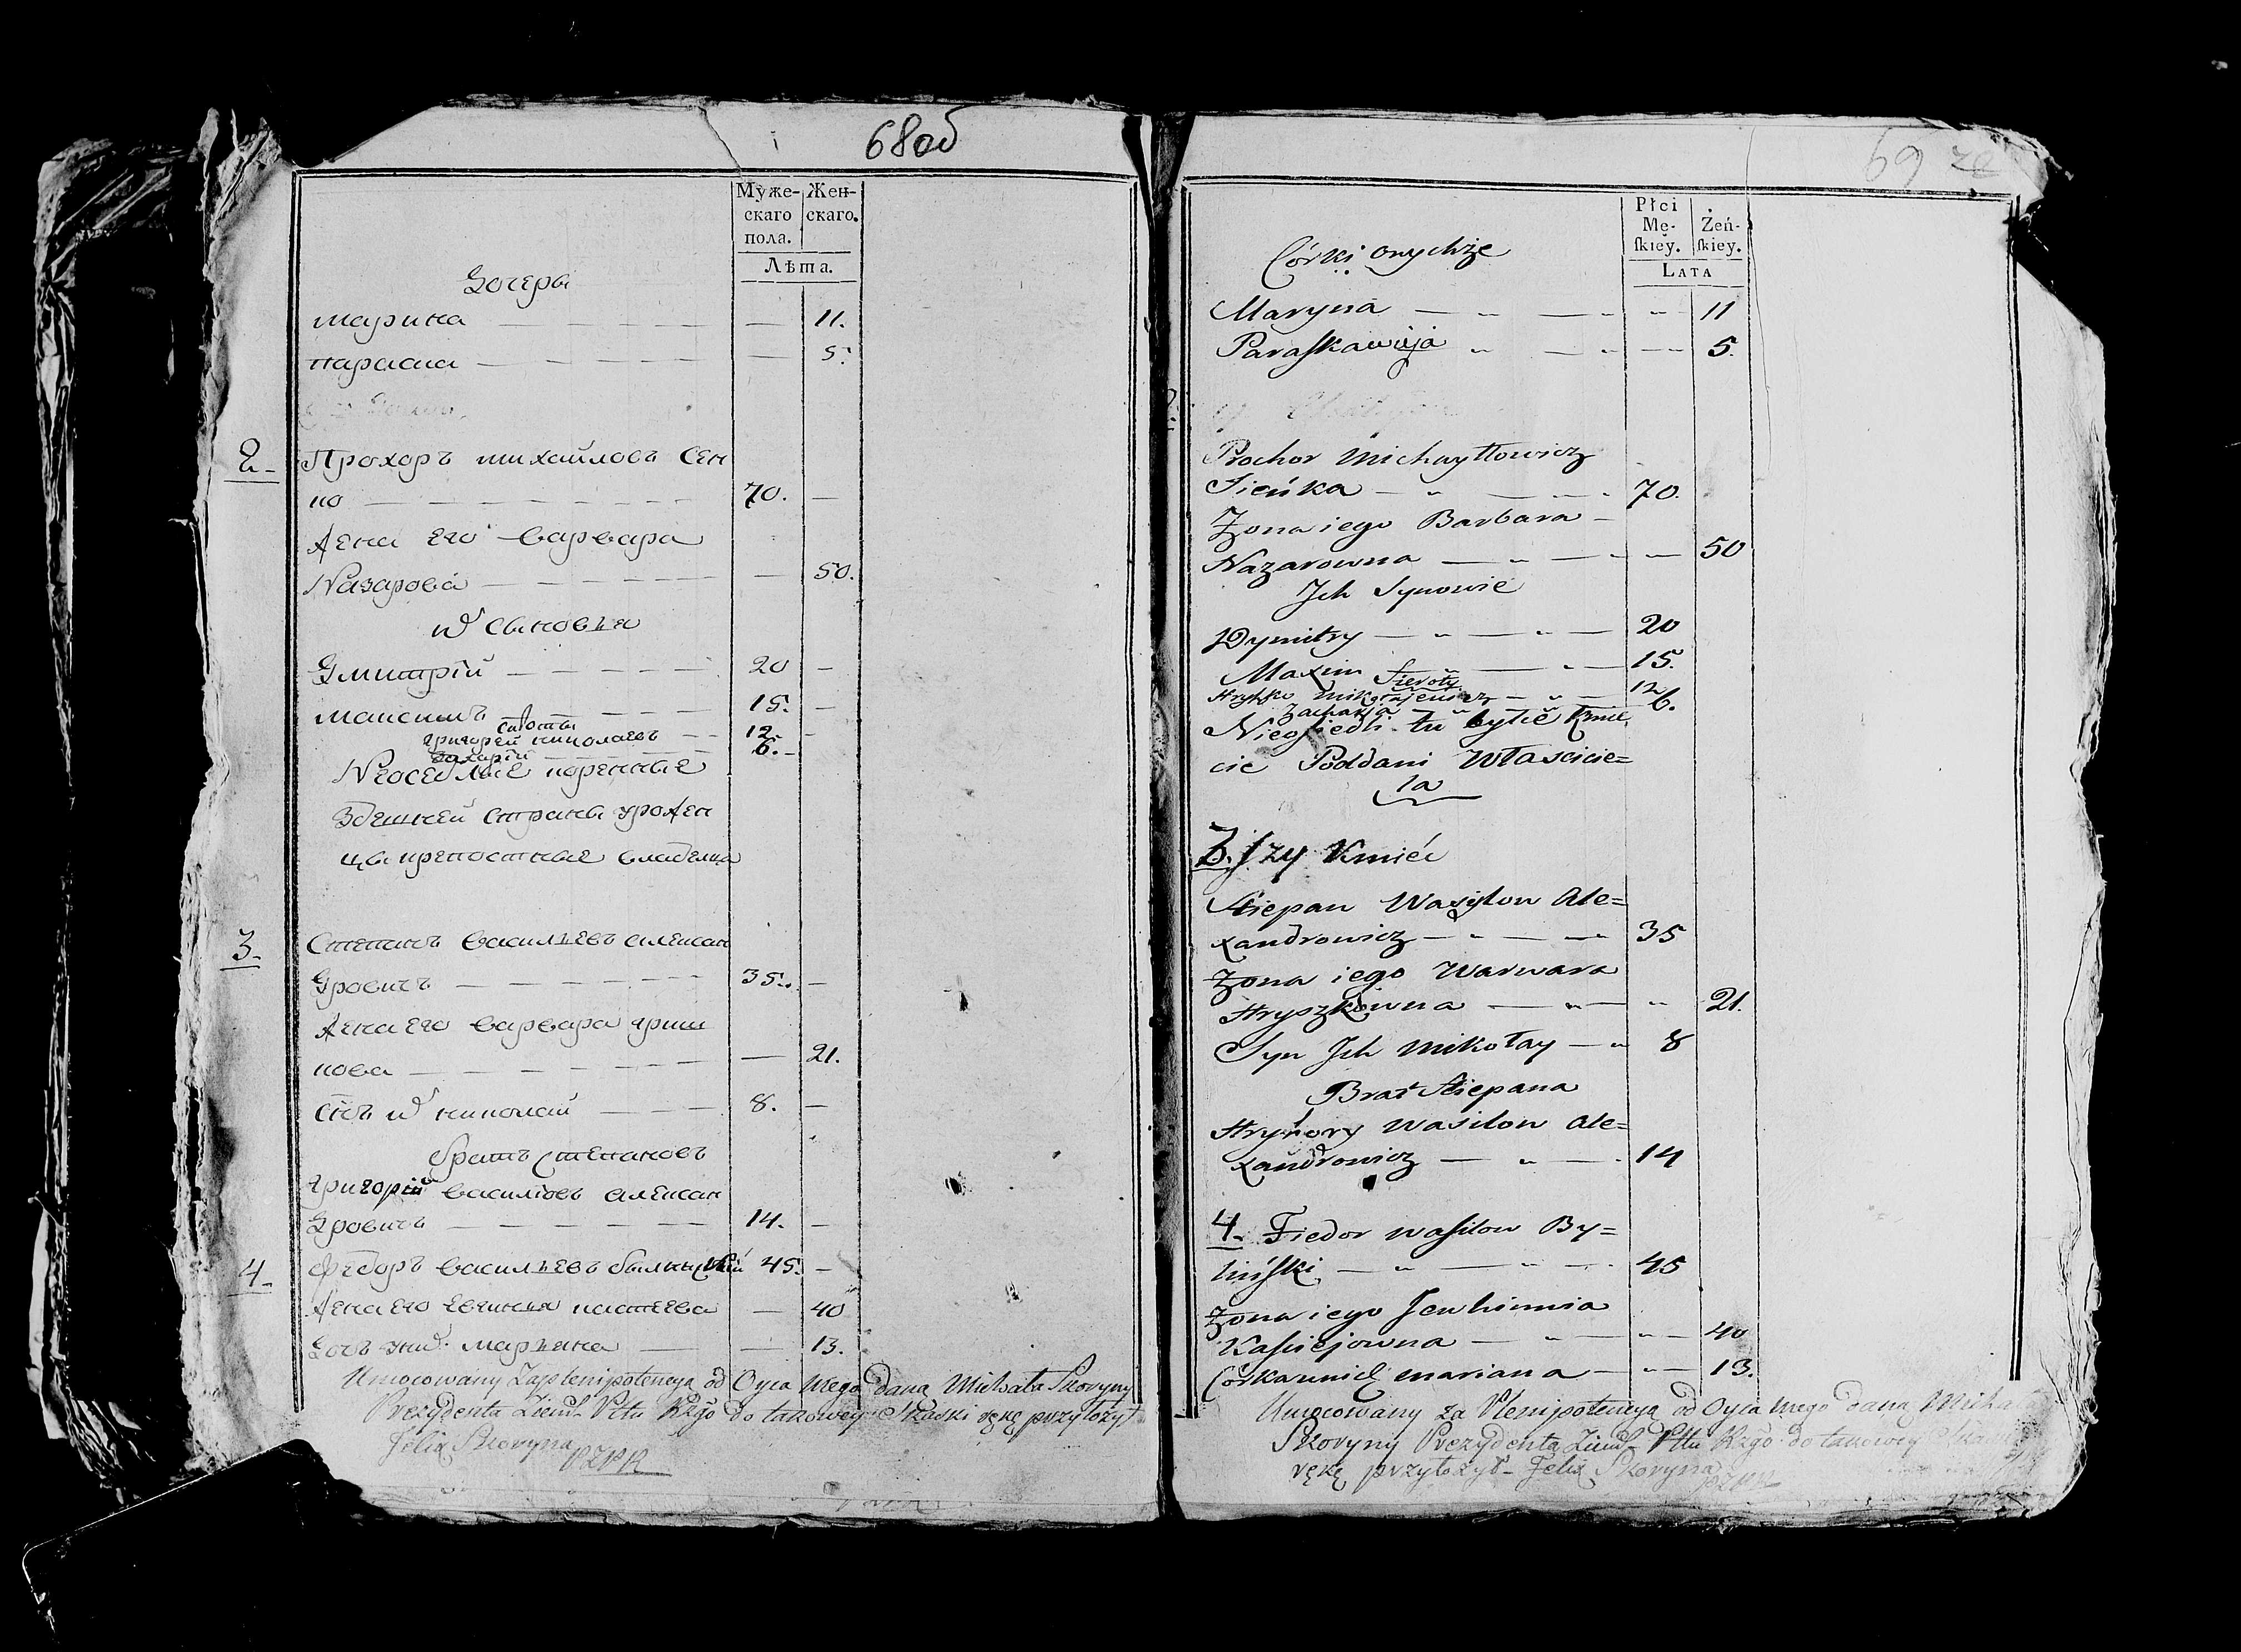 68об
Муже-
скаго
пола.
Жен-
скаго.
Лѣта.
Дочери
Марина — 11.
Параска — 5.
2. Прохоръ Михайловъ Сен
ко — 70. —
Жена его Варвара
Назарова — 50.
их сыновья
Дмитрій — 20 —
Максимъ — 15. —
сироты
Григорей Николаевъ — 12. —
Захарій — 6. —
Неоседлые коренные
здешней страны урожен
цы крепостные владелца
3. Степанъ Васильевъ Алексан
дровичъ — 35. —
Жена его Варвара Гриш
кова — 21.
Сынъ их Николай — 8. —
братъ Степановъ
Григорій Василіовъ Алексан
дровичъ — 14. —
4. Федоръ Васильевъ Былинскій 45. —
Жена его Евгимія — 40
Дочь их Марьяна — 13.
Umocowany za plenipotencyą od Oyca mego daną Michała Skoryny
Prezydenta Ziemſ. Pttu Rzgo do takowey Skaski rękę przyłożył
Felix Skoryna PZPR
69
Płci
Mę-
ſkiéy.
Żeń-
ſkiey.
Lata
Córki onychże
Maryna — 11
Paraſkawija — 5.
Prochor Michayłłowicz
Sieńka — 70.
Żona iego Barbara
Nazarowna — 50
Jch Synowie
Dymitry — 20
Maxim — 15.
Sieroty
Hryhko Mikołajewicz — 12
Zacharja — 6.
Nieosiedli tu byłie Kmie
cie Poddani Właścicie=
la
3. Kmieć
Stiepan Wasylow Ale=
xandrowicz — 35
Żona iego Warwara
Hryszkowna — 21.
Syn Jch Mikołay — 8
Brat Stiepana
Hryhory Wasilow Ale=
xandrowicz — 14
4. Fiedor Waſilow By=
linſki — 45
Żona iego Jewhimia
— 40
Córka u nich Mariana — 13.
Umocowany za Plenipotencyą od Oyca mego daną Micha
Skoryny Prezydenta Ziemſ. Pttu Rzgo do takowey
rękę przyłożył Felix Skoryna PZPR